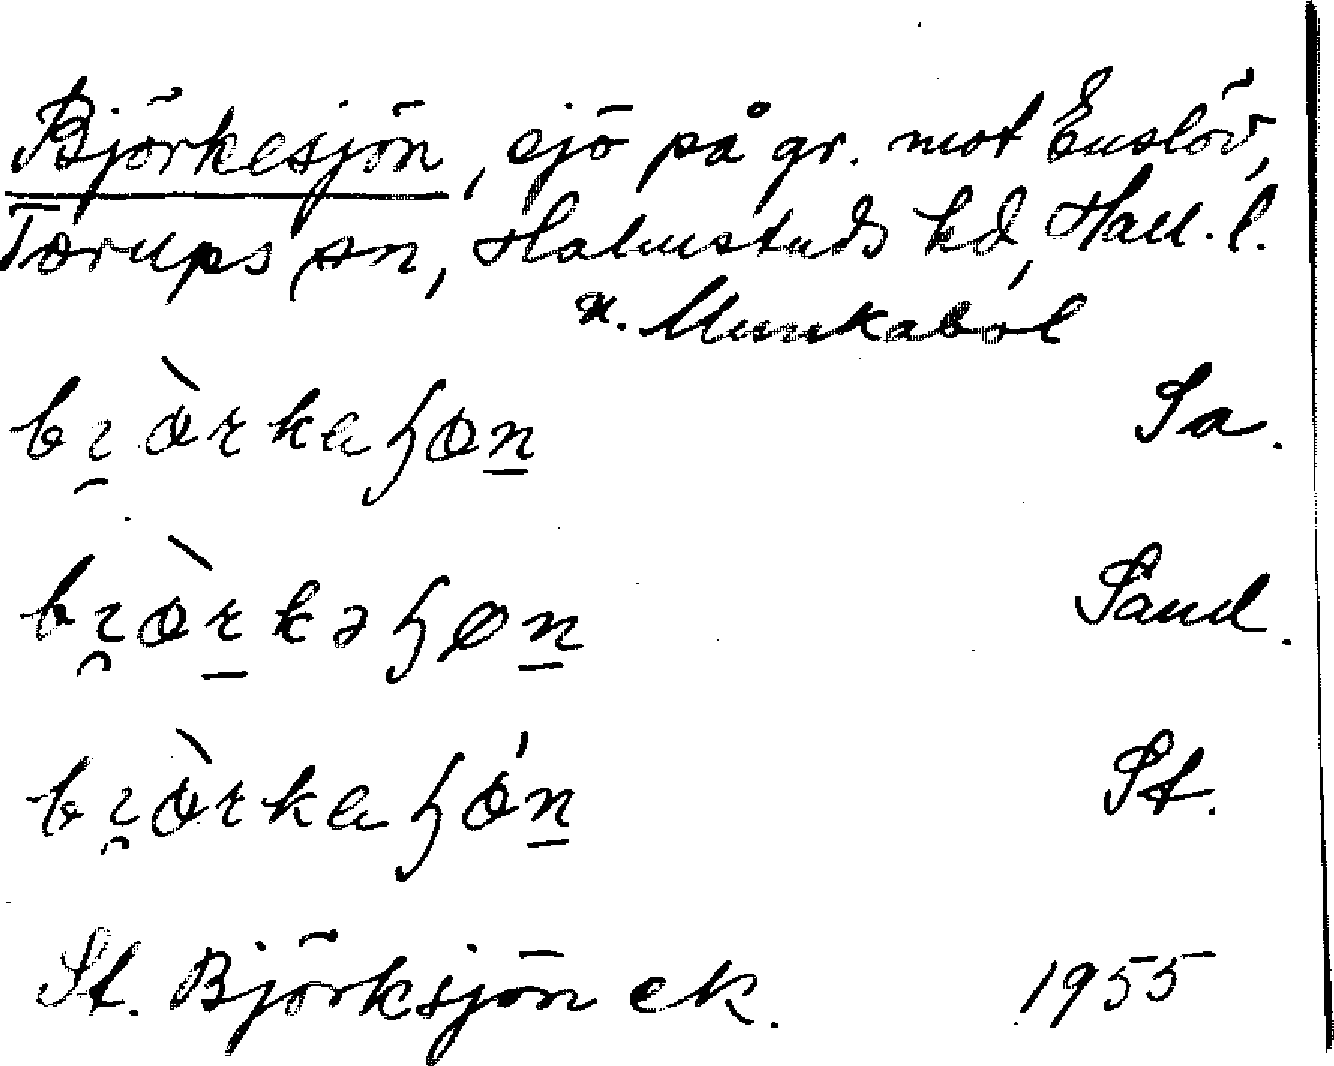 Björkesjön, sjö på gr. mot Enslöv,
Torups sn, Halmstads hd, Hall. l.
n. Munkabol
bi̯ò̱rkaɧøn̲ Sa.
bi̯òr̲kəɧøn̲ Sand.
bi̯òrkaɧǿn̲ St.
St. Björksjön ek. 1955